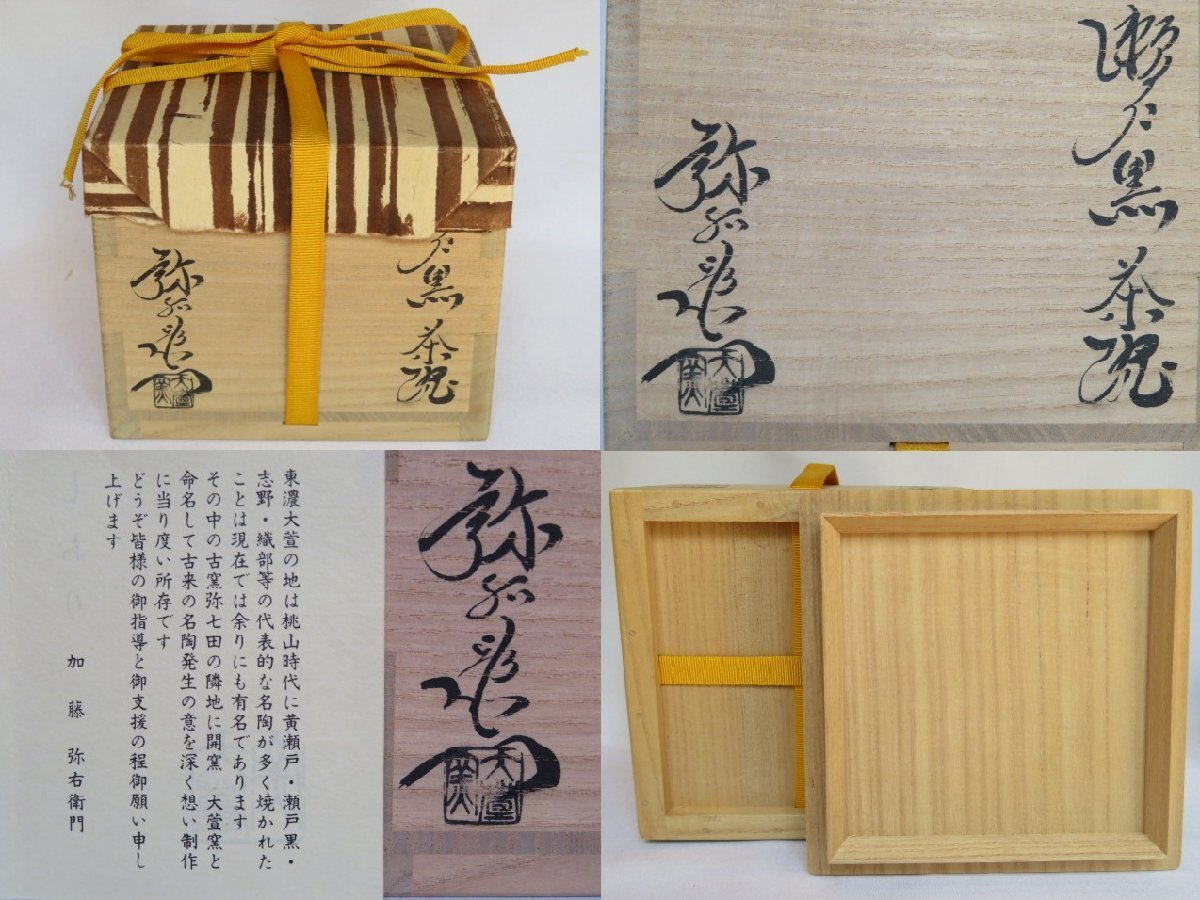 戸黒茶碗
弥右衛門
大萱窯
瀬戸黒茶碗
弥右衛門
大萱窯
東濃大萱の地は桃山時代に黄瀬戸・瀬戸黒・
志野・織部等の代表的な名陶が多く焼かれた
ことは現在では余りにも有名であります
その中の古窯弥七田の隣地に開窯 大萱窯と
命名して古来の名陶発生の意を深く想い制作
に当り度い所存です
どうぞ皆様の御指導と御支援の程御願い申し
上げます
加藤弥右衛門
弥右衛門
大萱窯